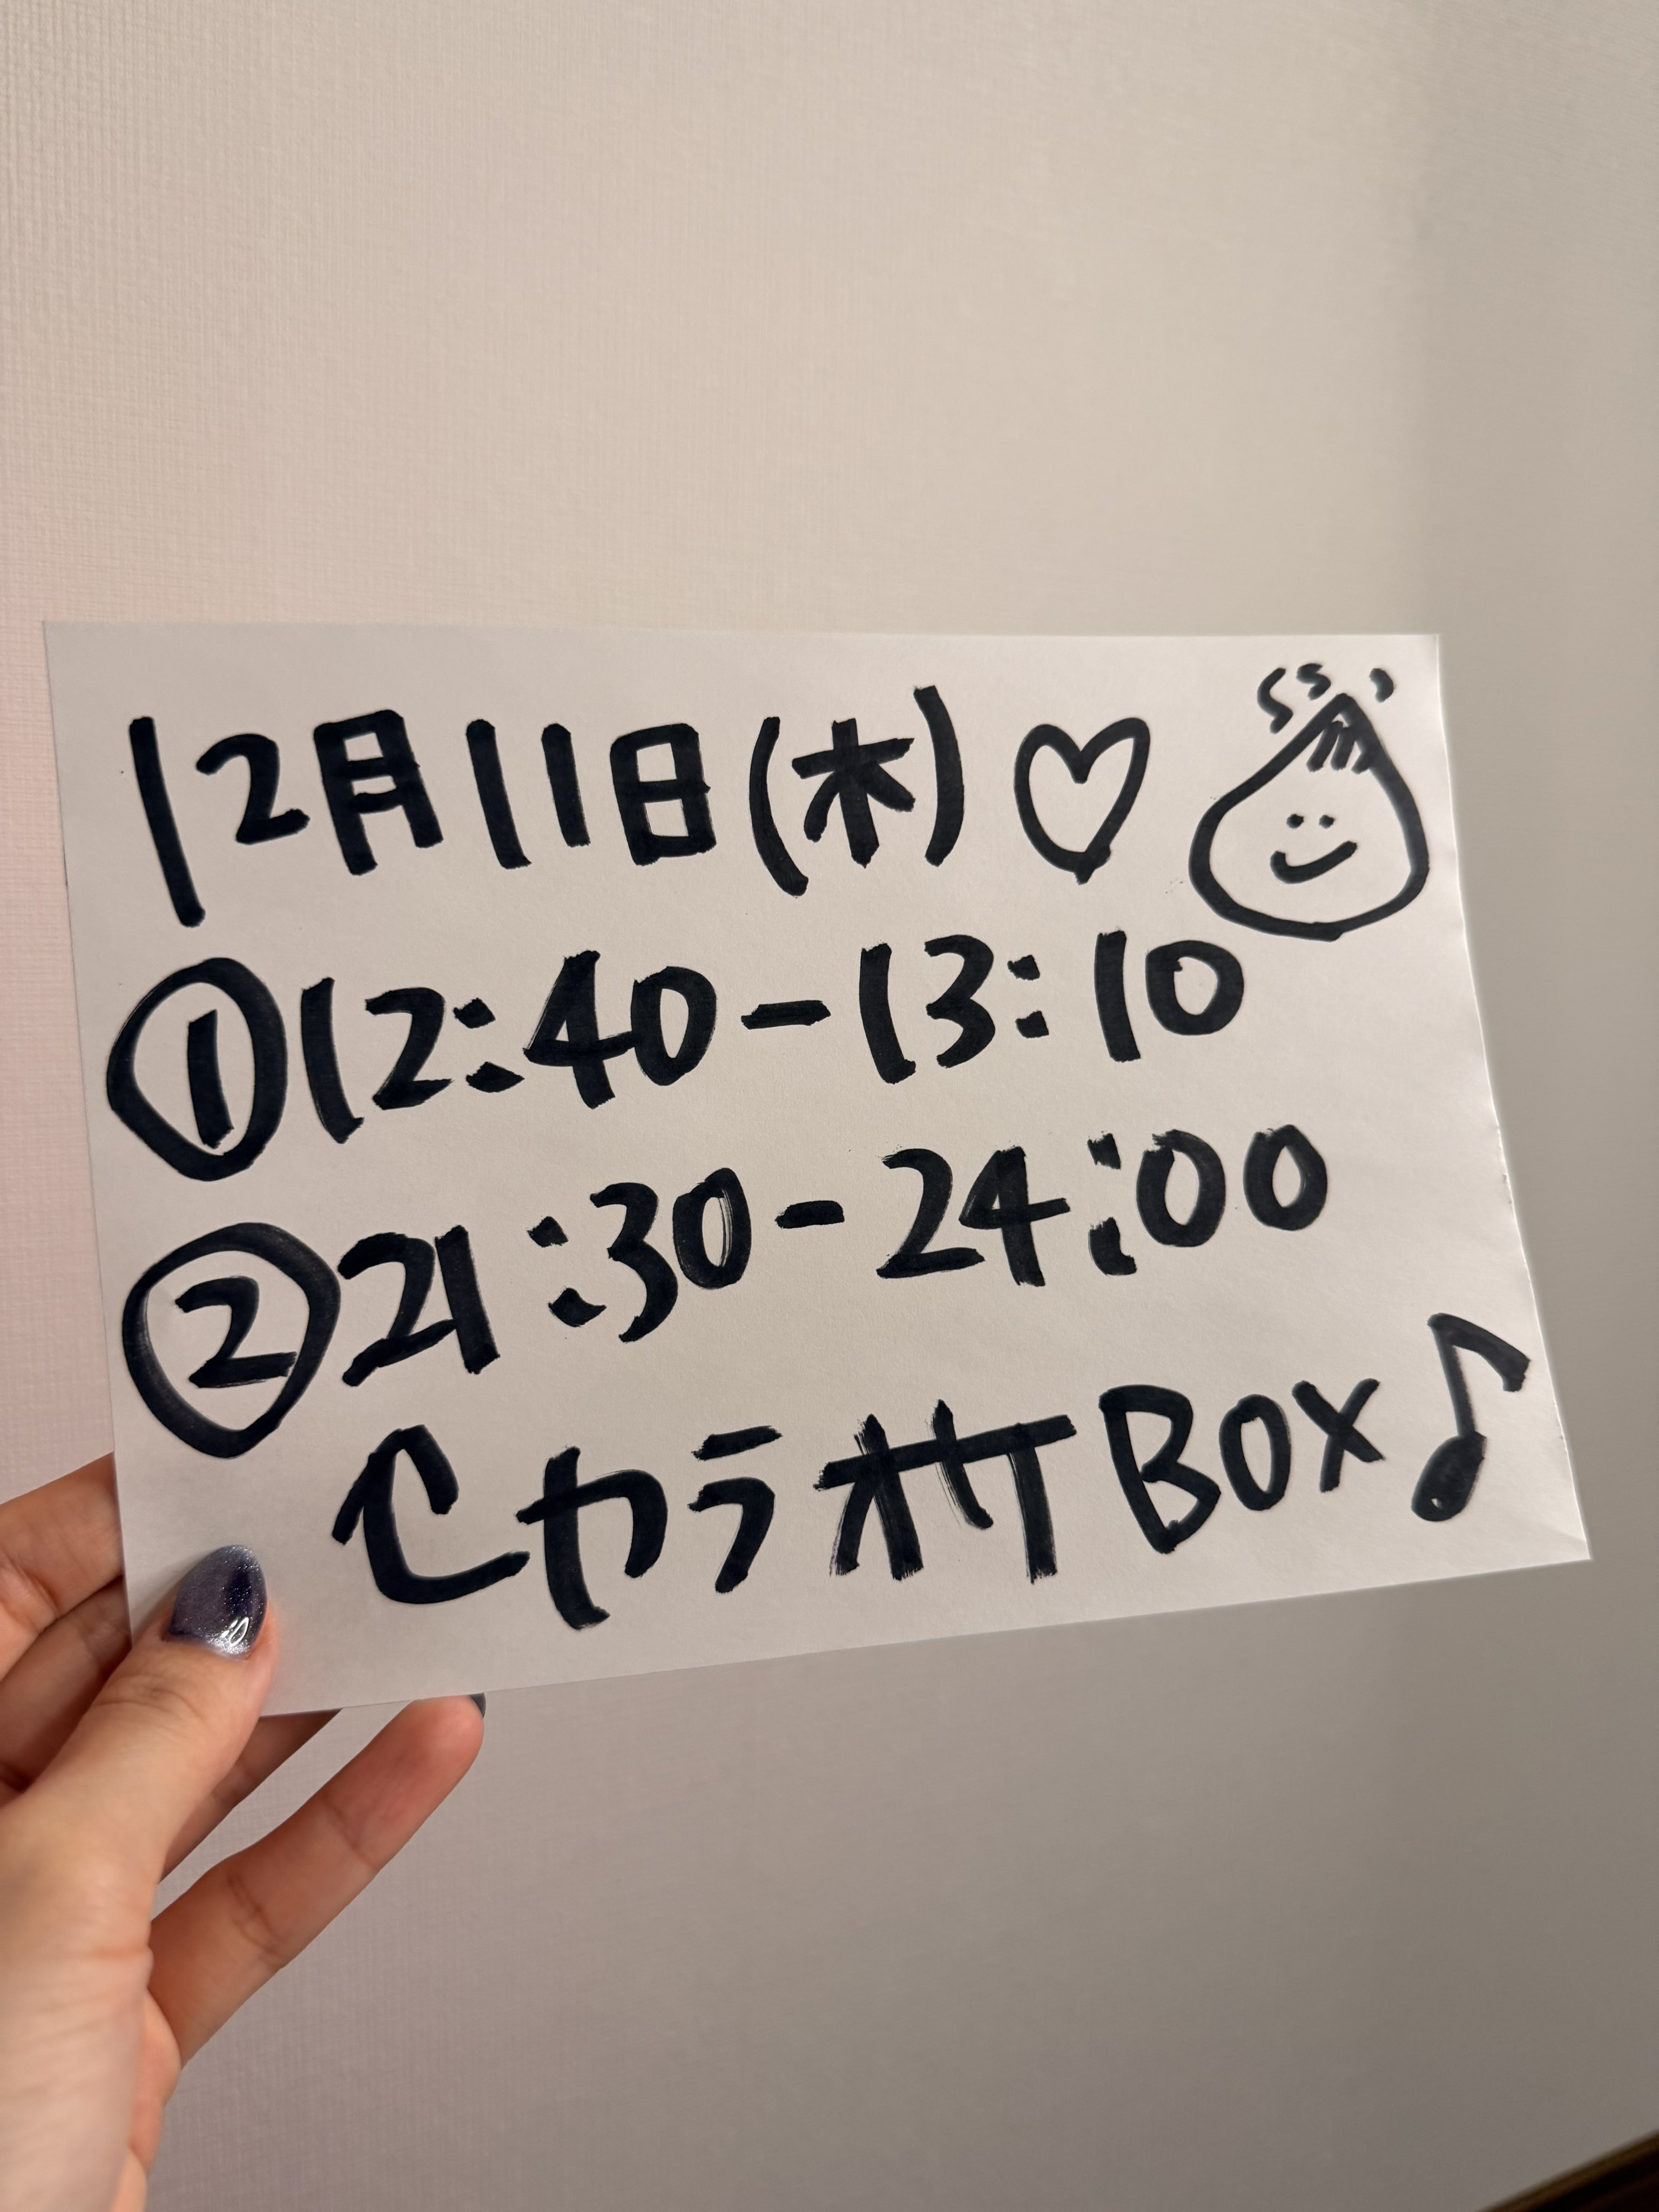 12月11日(木)♡
①12:40-13:10
②21:30-24:00
カラオケBOX♪